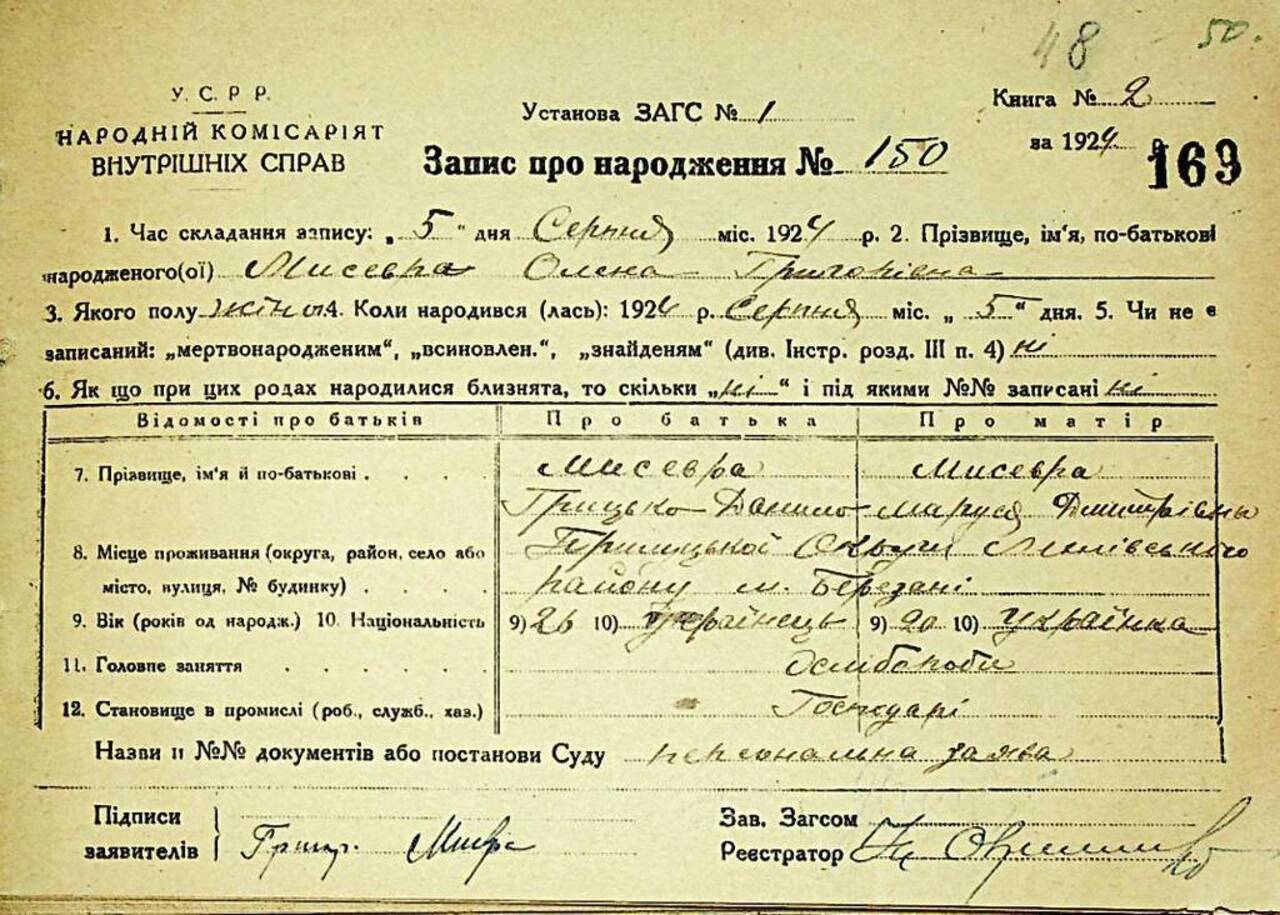 48 50.
У. С. Р Р.
НАРОДНІЙ КОМІСАРІЯТ
ВНУТРІШНІХ СПРАВ
Установа ЗАГС № 1
Запис про народження № 150
Книга № 2
за 1924 р.
169
1. Час складання запису: „ 5 " дня Серпня міс. 1924 р. 2. Прізвище, ім'я, по-батькові
народженого(ої) Мисевра Олена Григорівна
3. Якого полу жіноч. 4. Коли народився (лась): 1924 р. Серпня міс. „ 5 " дня. 5. Чи не є
записаний: „мертвонародженим", „всиновлен.", „знайденям" (див. Інстр. розд. III п. 4) ні
6. Як що при цих родах народилися близнята, то скільки „ні " і під якими №№ записані ні
Відомості про батьків Про батька Про матір
7. Прізвище, ім'я й по-батькові . . . . Мисевра Мисевра
Грицько Данило Маруся Дмитрівна
8. Місце проживання (округа, район, село або Прилуцької Округи
місто, вулиця, № будинку) . . . . району м. Березані
9. Вік (років од народж.) 10. Національність 9) 26 10) Українець 9) 20 10) Українка
11. Головне заняття . . . . . Хлібороби
12. Становище в промислі (роб., служб., хаз.) Господарі
Назви й №№ документів або постанови Суду персональна заява
Підписи
заявителів Григ.
Зав. Загсом
Реєстратор